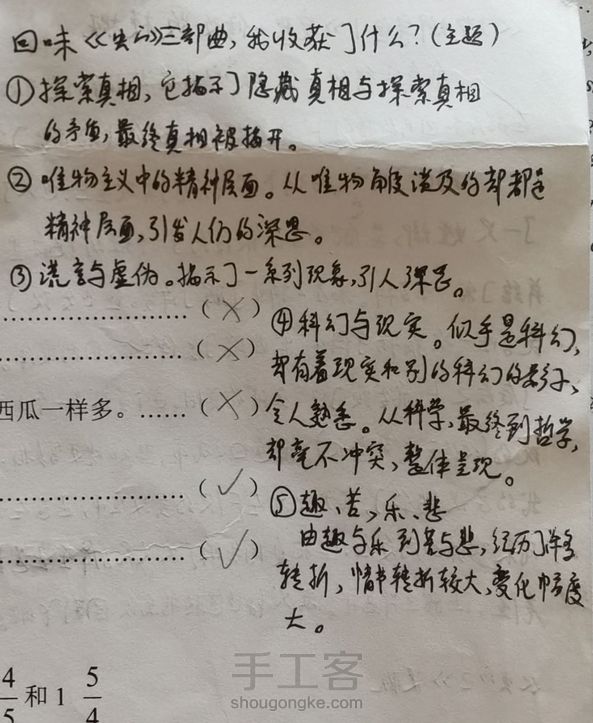 回味《尖叫》三部曲,我收获了什么?(主题)
①探索真相,它揭示了隐藏真相与探索真相
的矛盾,最终真相被揭开。
②唯物主义中的精神层面。从唯物角度谈及的却都是
精神层面,引发人们的深思。
③谎言与虚伪。揭示了一系列现象,引人深思。
..................(×)
..................(×)
西瓜一样多。......(×)
..................(✓)
..................(✓)
④科幻与现实。似乎是科幻,
却有着现实和别的科幻的影子,
令人熟悉。从科学,最终到哲学,
却毫不冲突,整体呈现。
⑤趣、苦、乐、悲
由趣与乐到苦与悲,经历了许多
转折,情节转折较大,变化幅度
大。
4/5 和 1 5/4
手工客
shougongke.com